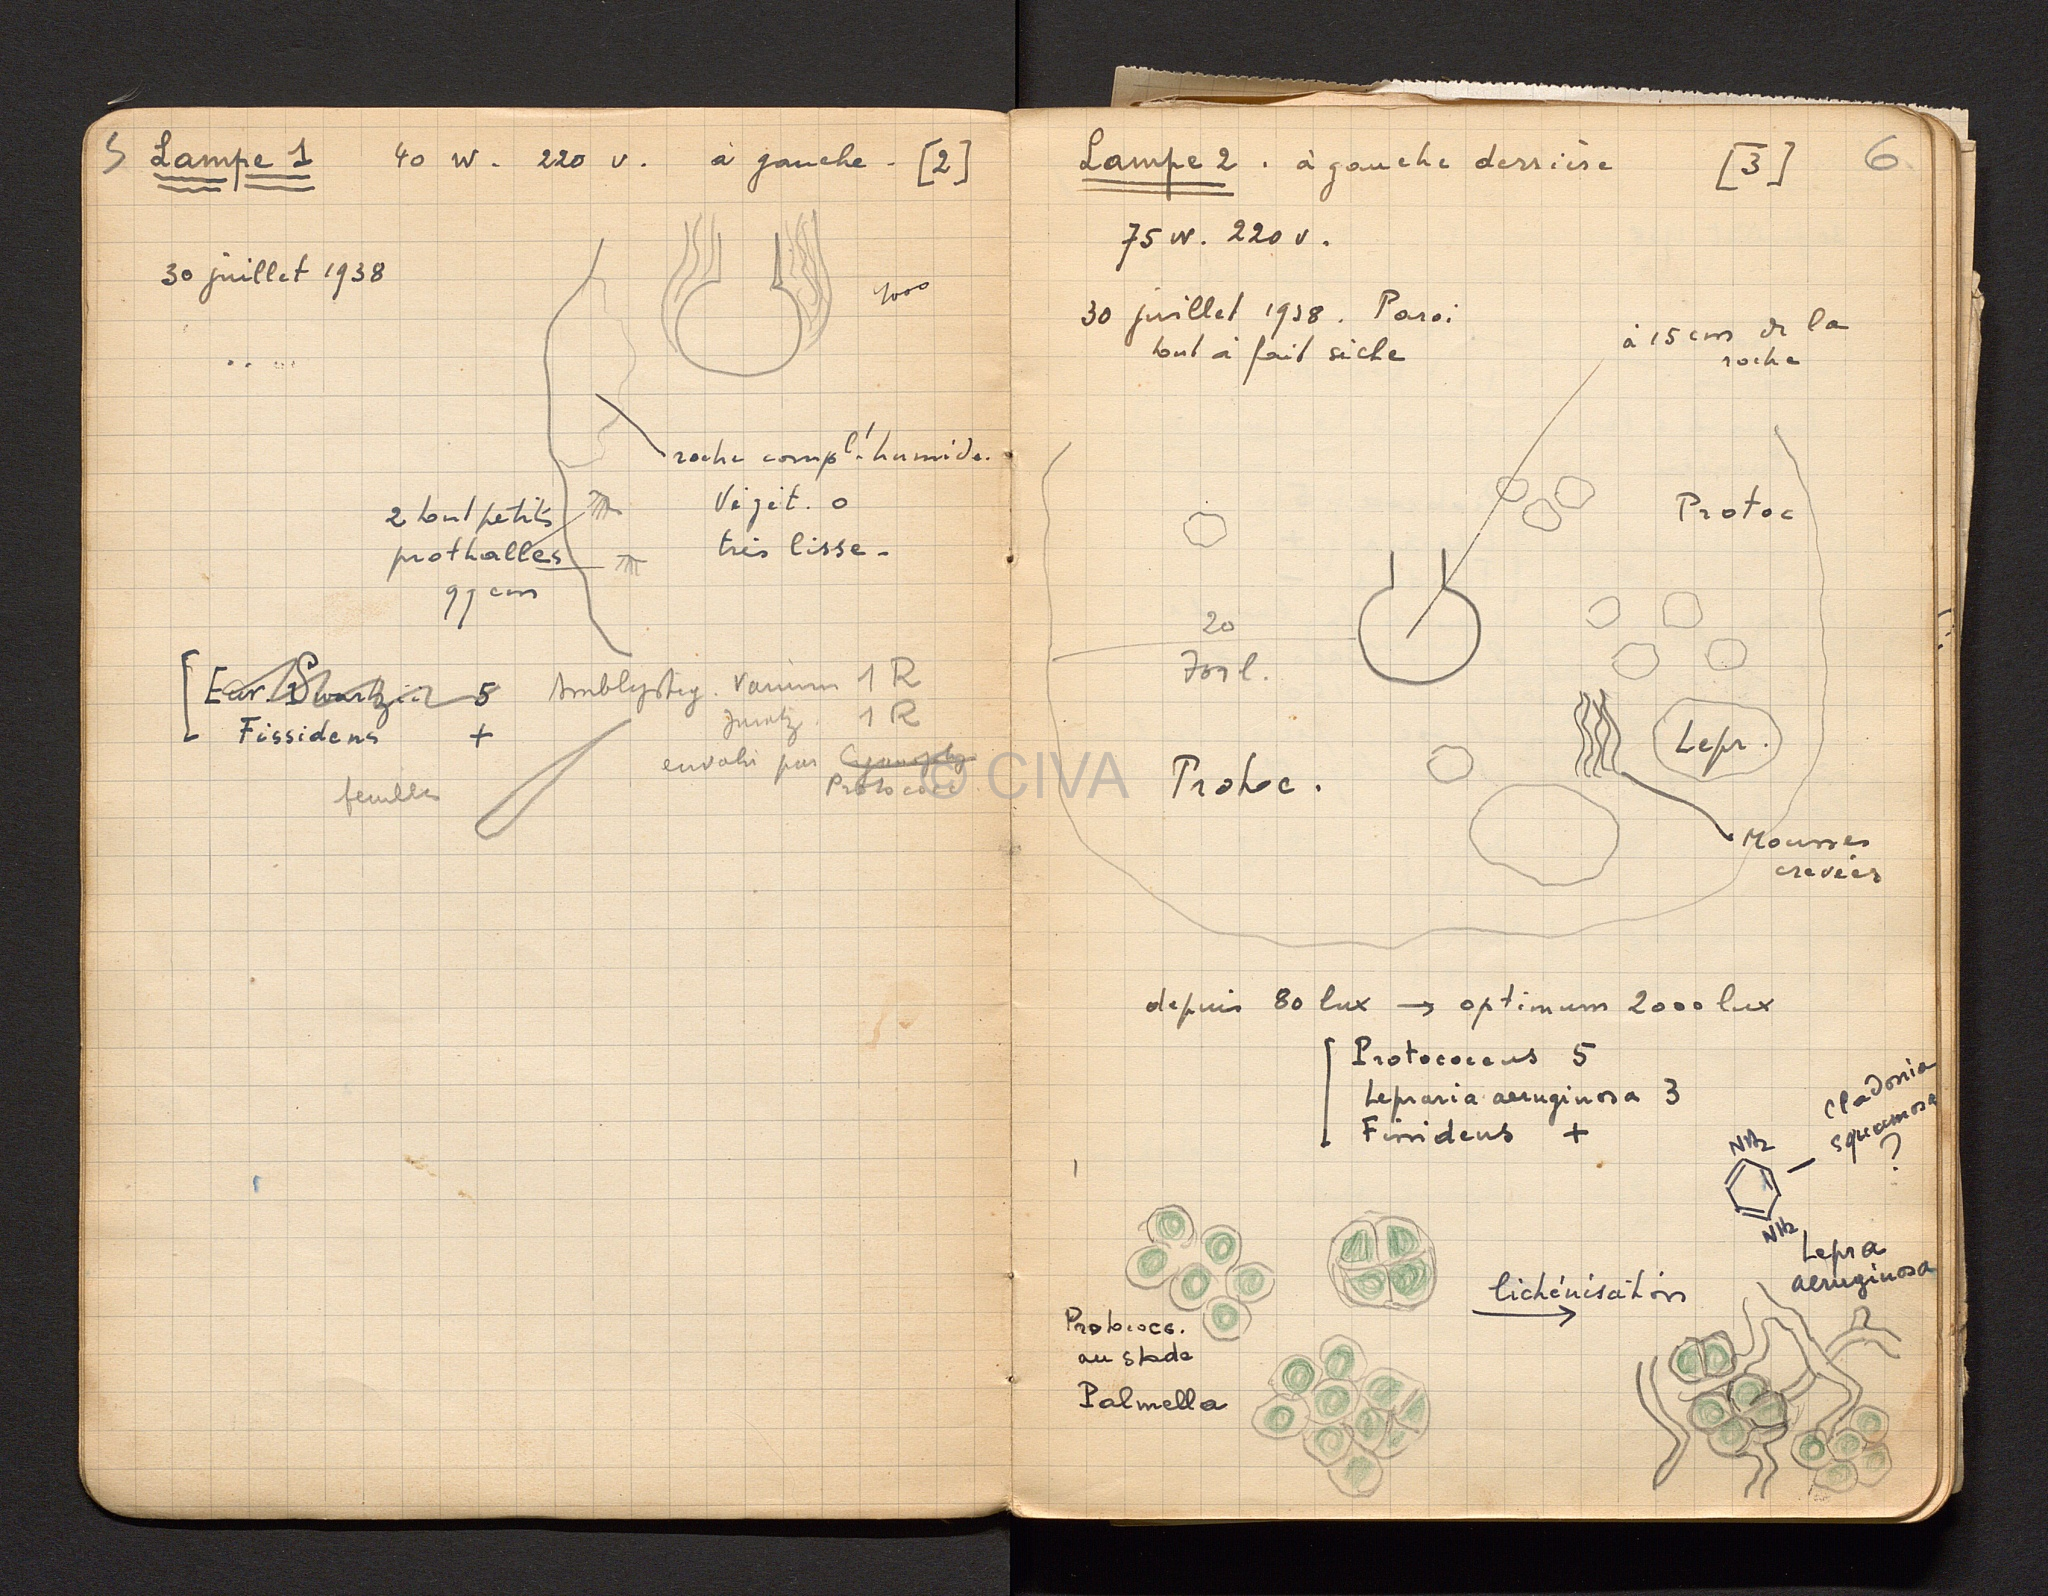 5 Lampe 1 40 W. 220 v. à gauche. [2]
30 juillet 1938
1000
roche compl.t humide.
Végét. 0
très lisse.
2 tout petits
prothalles
99 cm
Eur. Swartzii 5
Fissidens +
Amblysteg. varium 1 R
Juratz. 1 R
envahi par
Protococc
feuilles
Lampe 2. à gauche derrière [3] 6
75 W. 220 v.
30 juillet 1938. Paroi
tout à fait sèche
à 15 cm de la
roche
Protoc
20
Protoc.
Lepr.
Mousses
crevées
depuis 80 lux → optimum 2000 lux
Protococcus 5
Lepraria aeruginosa 3
Fissidens +
Cladonia
squamosa
?
NH2
NH2
Lepra
aeruginosa
lichénisation
Protococc.
au stade
Palmella
© CIVA